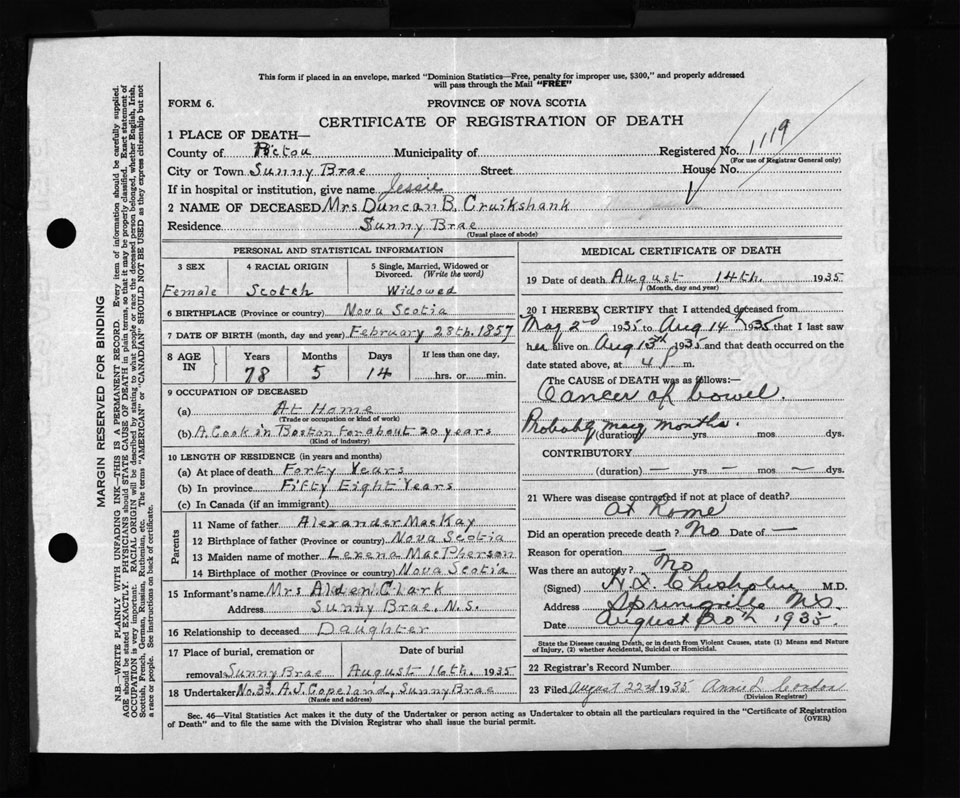 This form if placed in an envelope, marked "Dominion Statistics—Free, penalty for improper use, $300," and properly addressed
will pass through the Mail "FREE"
FORM 6.
PROVINCE OF NOVA SCOTIA
CERTIFICATE OF REGISTRATION OF DEATH
1 PLACE OF DEATH—
County of Pictou Municipality of Registered No. 1119
(For use of Registrar General only)
City or Town Sunny Brae Street House No.
If in hospital or institution, give name Jessie
2 NAME OF DECEASED Mrs Duncan B. Cruikshank
Residence Sunny Brae
(Usual place of abode)
PERSONAL AND STATISTICAL INFORMATION
3 SEX 4 RACIAL ORIGIN 5 Single, Married, Widowed or
Divorced. (Write the word)
Female Scotch Widowed
6 BIRTHPLACE (Province or country) Nova Scotia
7 DATE OF BIRTH (month, day and year) February 28th. 1857
8 AGE IN Years Months Days If less than one day,
78 5 14 hrs. or min.
9 OCCUPATION OF DECEASED
(a) At Home
(Trade or occupation or kind of work)
(b) A Cook in Boston for about 20 years
(Kind of industry)
10 LENGTH OF RESIDENCE (in years and months)
(a) At place of death Forty Years
(b) In province Fifty Eight Years
(c) In Canada (if an immigrant)
Parents
11 Name of father Alexander MacKay
12 Birthplace of father (Province or country) Nova Scotia
13 Maiden name of mother Lexena MacPherson
14 Birthplace of mother (Province or country) Nova Scotia
15 Informant's name Mrs Alden Clark
Address Sunny Brae, N.S.
16 Relationship to deceased Daughter
17 Place of burial, cremation or Date of burial
removal Sunny Brae August 16th. 1935
18 Undertaker No. 33. A.J. Copeland, Sunny Brae
(Name and address)
MEDICAL CERTIFICATE OF DEATH
19 Date of death August 14th. 1935
(Month, day and year)
20 I HEREBY CERTIFY that I attended deceased from
May 2nd 1935 to Aug 14th 1935 that I last saw
her alive on Aug 13th 1935 and that death occurred on the
date stated above, at 4 P m.
The CAUSE OF DEATH was as follows:—
Cancer of bowel.
Probably many months.
(duration) yrs mos dys.
CONTRIBUTORY
(duration) — yrs — mos — dys.
21 Where was disease contracted if not at place of death?
At Home
Did an operation precede death? No Date of —
Reason for operation —
Was there an autopsy? No
(Signed) Chisholm M.D.
Address Springville N.S.
Date August 20th 1935
State the Disease causing Death, or in death from Violent Causes, state (1) Means and Nature
of Injury, (2) whether Accidental, Suicidal or Homicidal.
22 Registrar's Record Number
23 Filed August 22nd 1935 Annie L Gordon
(Division Registrar)
Sec. 46—Vital Statistics Act makes it the duty of the Undertaker or person acting as Undertaker to obtain all the particulars required in the "Certificate of Registration
of Death" and to file the same with the Division Registrar who shall issue the burial permit.
(OVER)
MARGIN RESERVED FOR BINDING
N.B.—WRITE PLAINLY WITH UNFADING INK—THIS IS A PERMANENT RECORD. Every item of information should be carefully supplied.
AGE should be stated EXACTLY. PHYSICIANS should STATE CAUSE OF DEATH in plain terms, so that it may be properly classified. Exact statement of
OCCUPATION is very important. RACIAL ORIGIN will be described by stating to what people or race the deceased person belonged, whether English, Irish,
Scottish, French, German, Russian, Ruthenian, etc. The terms "AMERICAN" or "CANADIAN" SHOULD NOT BE USED as they express citizenship but not
a race or people. See instructions on back of certificate.